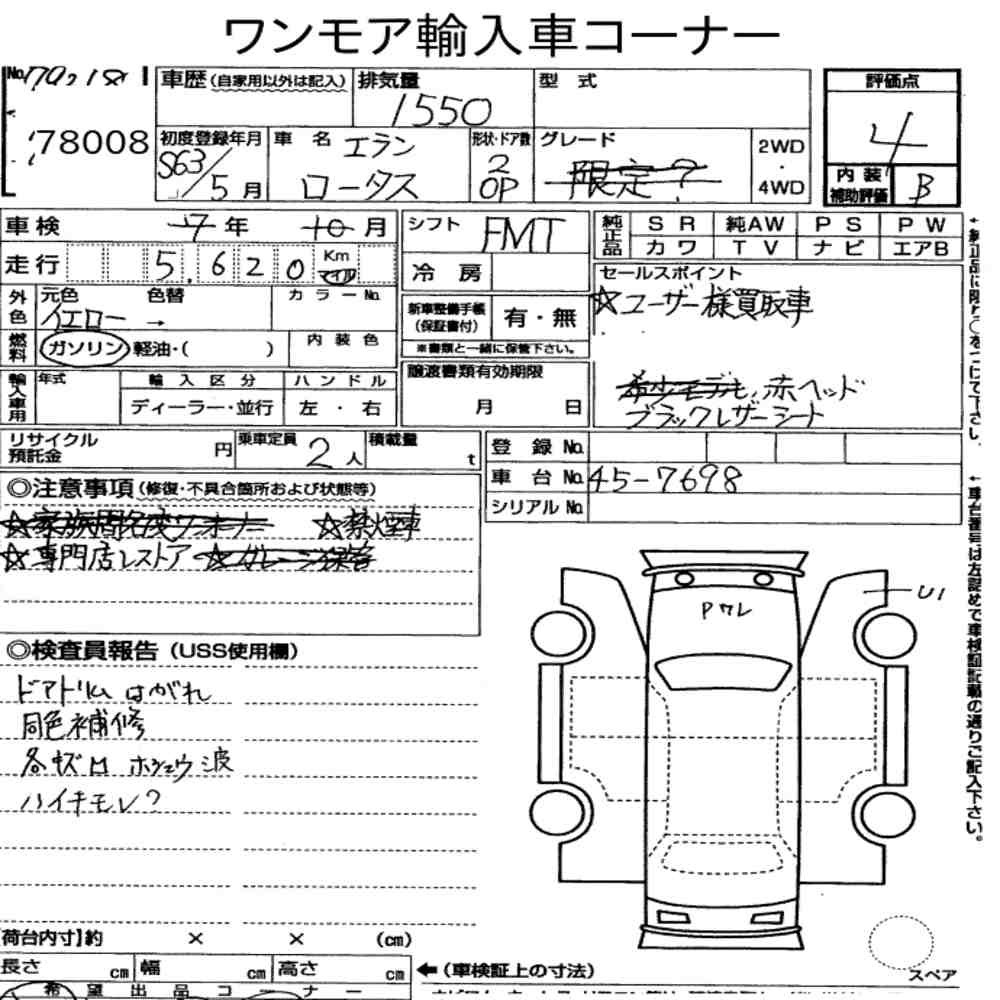 ワンモア輸入車コーナー
No.
78008
車歴(自家用以外は記入)
排気量
1550
型式
評価点
4
初度登録年月
S63/5月
車名
エラン
ロータス
形状・ドア数
2
OP
グレード
限定?
2WD
・
4WD
内装
補助評価
B
車検 7年 10月
シフト
FMT
純正品
SR 純AW PS PW
カワ TV ナビ エアB
走行 5,620 Km マイル
冷房
セールスポイント
☆ユーザー様買取車
外色
元色 色替
イエロー →
カラーNo.
新車整備手帳
(保証書付)
有・無
※書類と一緒に保管下さい。
燃料
ガソリン 軽油・( )
内装色
輸入車用
年式
輸入区分
ハンドル
ディーラー・並行
左・右
譲渡書類有効期限
月 日
希少モデル、赤ヘッド
ブラックレザーシート
リサイクル
預託金
円
乗車定員
2人
積載量
t
登録No.
車台No. 45-7698
シリアルNo.
◎注意事項(修復・不具合箇所および状態等)
☆禁煙車
☆専門店レストア
Pワレ
U1
◎検査員報告(USS使用欄)
ドアトリムはがれ
同色補修
各キズロ ホシュウ波
ハイキモレ?
【荷台内寸】約 × × (cm)
長さ cm 幅 cm 高さ cm
←(車検証上の寸法)
スペア
希望出品コーナー
←車台番号は左詰めで車検証記載の通りご記入下さい。